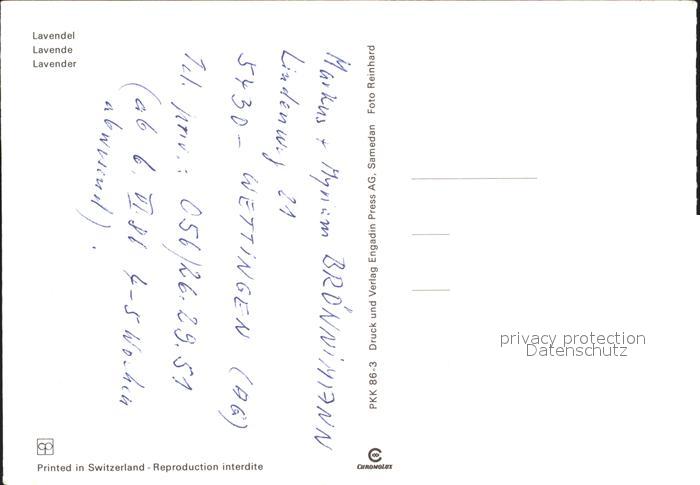 Lavendel
Lavende
Lavender
Markus + Myriam BRÖNNiMANN
Lindenweg 21
5430 - WETTiNGEN (AG)
Tel. priv.: 056/26.29.51
(ab 6. VI. 86 4-5 Wochen
abwesend).
PKK 86-3 Druck und Verlag Engadin Press AG, Samedan Foto Reinhard
privacy protection
Datenschutz
Printed in Switzerland - Reproduction interdite
CHROMOLUX